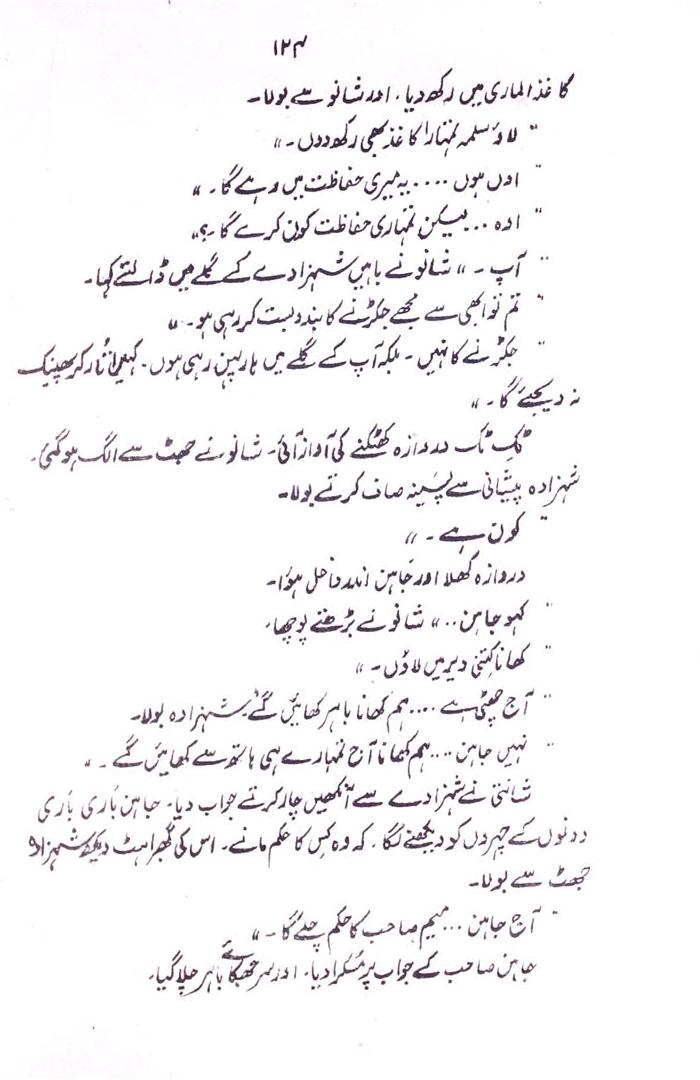 ۱۲۴
کاغذ الماری میں رکھ دیا۔ اور شانو سے بولا۔
"لاؤ سلمہ تمہارا کاغذ بھی رکھ دوں۔"
"اوں ہوں .... یہ میری حفاظت میں رہے گا۔"
"اوہ ... لیکن تمہاری حفاظت کون کرے گا۔؟"
"آپ۔" شانو نے باہیں شہزادے کے گلے میں ڈالتے کہا۔
"تم تو ابھی سے مجھے جکڑنے کا بندوبست کر رہی ہو۔"
"جکڑنے کا نہیں۔ بلکہ آپ کے گلے میں ہار پہن رہی ہوں۔ کہیں اُتار کر پھینک
نہ دیجئے گا۔"
ٹک ٹک دروازہ کھٹکنے کی آواز آئی۔ شانو نے جھٹ سے الگ ہو گئی۔
شہزادہ پیشانی سے پسینہ صاف کرتے بولا۔
"کون ہے۔"
دروازہ کھلا اور جاہن اندر داخل ہوا۔
"کہو جاہن .." شانو نے بڑھتے پوچھا۔
"کھانا کتنی دیر میں لاؤں۔"
"آج چھٹی ہے .... ہم کھانا باہر کھائیں گے" شہزادہ بولا۔
"نہیں جاہن .... ہم کھانا آج تمہارے ہی ہاتھ سے کھائیں گے۔"
شانتی نے شہزادے سے آنکھیں چار کرتے جواب دیا۔ جاہن باری باری
دونوں کے چہروں کو دیکھنے لگا۔ کہ وہ کس کا حکم مانے۔ اس کی گھبراہٹ دیکھ شہزادہ
جھٹ سے بولا۔
"آج جاہن ... میم صاحب کا حکم چلے گا۔"
جاہن صاحب کے جواب پر مسکرا دیا۔ اور سر جھکائے باہر چلا گیا۔